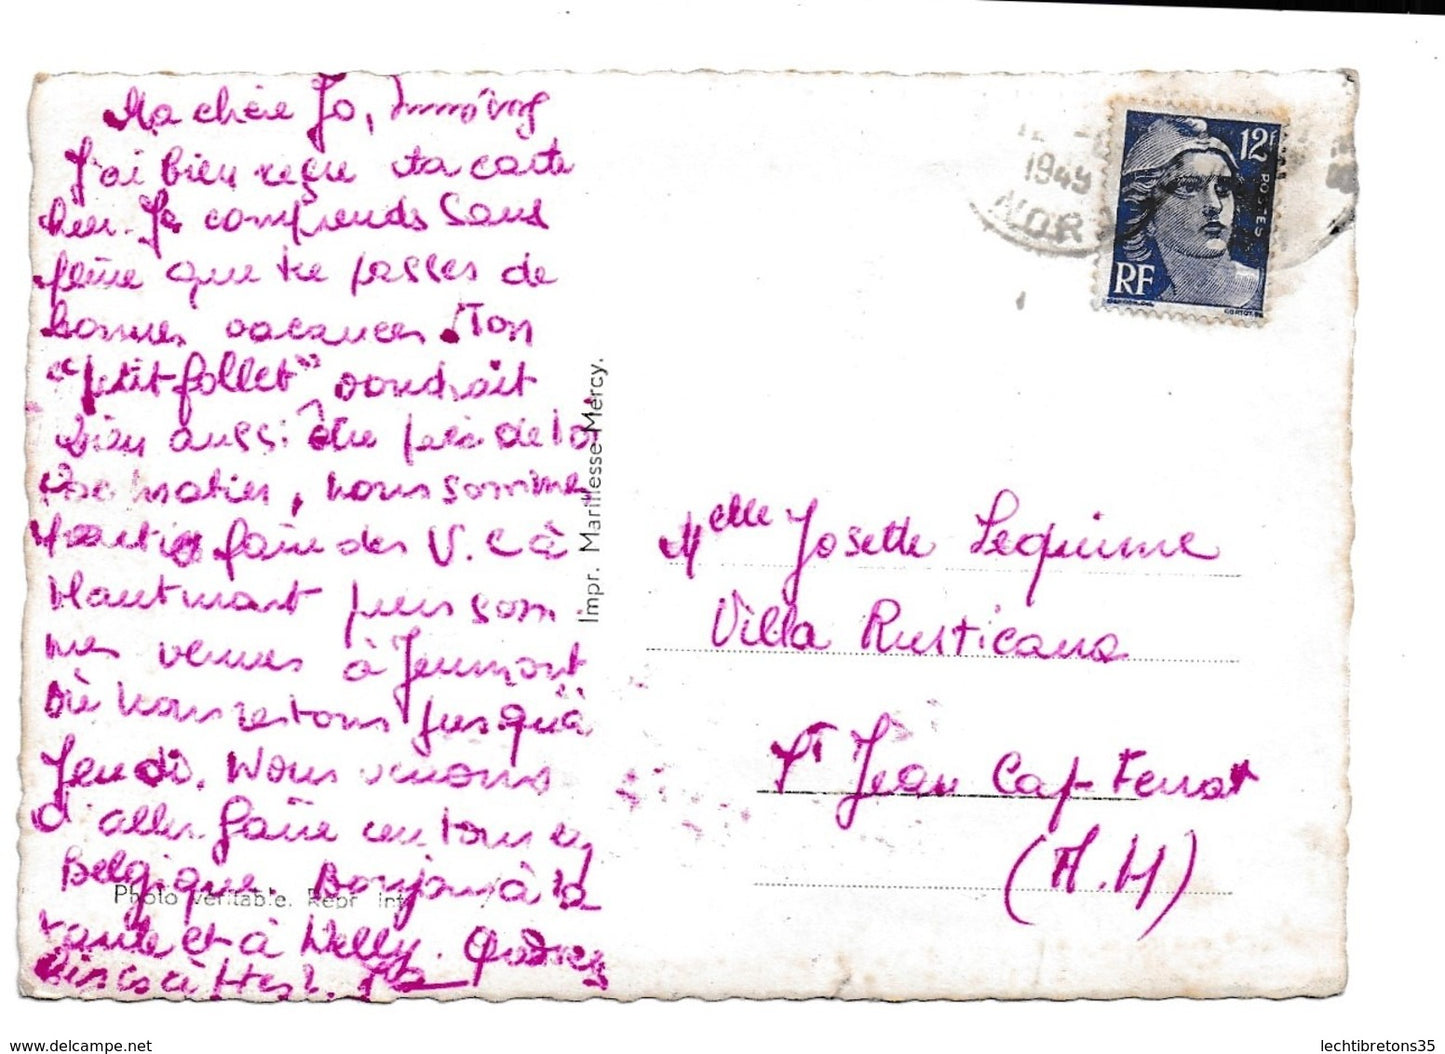 Ma chère Jo,
J'ai bien reçue ta carte
hier. Je comprends sans
peine que tu passes de
bonnes vacances. Ton
"petit follet" voudrait
bien aussi être près de toi
Ce matin, nous sommes
partis faire des V.C à
Hautmont puis som
mes venues à Jeumont
où nous restons jusqu'à
Jeudi. Nous venons
d'aller faire un tour en
Belgique. Bonjour à ta
tante et à Nelly.
Impr. Marillesse-Mercy.
Photo véritable. Repr. int
12F
POSTES
RF
1949
NORD
Melle Josette Lequime
Villa Rusticana
St Jean Cap-Ferrat
(A.M)
lechtibretons35
www.delcampe.net